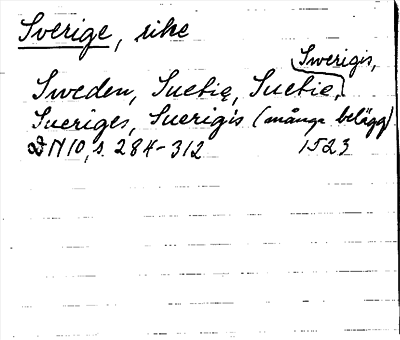 Sverige, rike
Swerigis,
Sweden, Suetię, Suetie,
Sueriges, Suerigis (många belägg)
DN 10, s. 284-312 1523